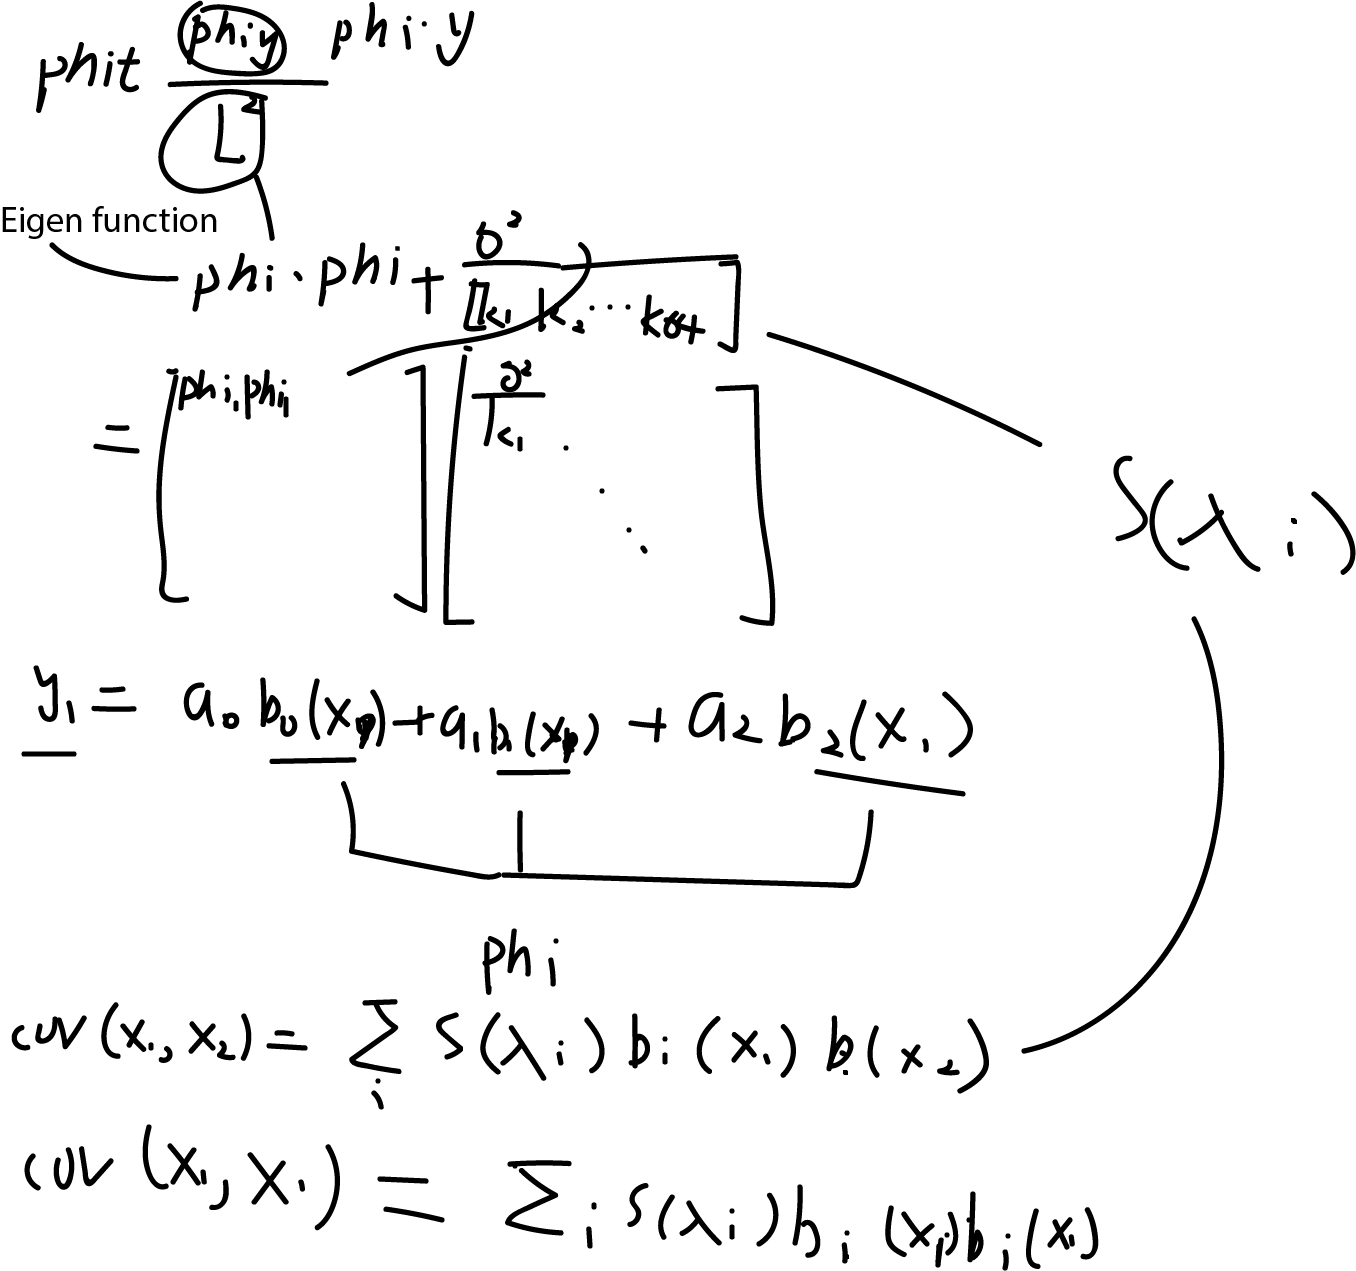 phit phiy phi·y
L²
Eigen function
phi·phi + σ²
[k₁ k₂ ··· ]
= [phi₁phi₁] [σ²
k₁ ·
· · ·]
S(λi)
y₁ = a₀b₀(x₁) + a₁b₁(x₁) + a₂b₂(x₁)
phi
cov(x₁,x₂) = Σi S(λi)bi(x₁)bi(x₂)
cov(x₁,x₁) = Σi S(λi)bi(x₁)bi(x₁)